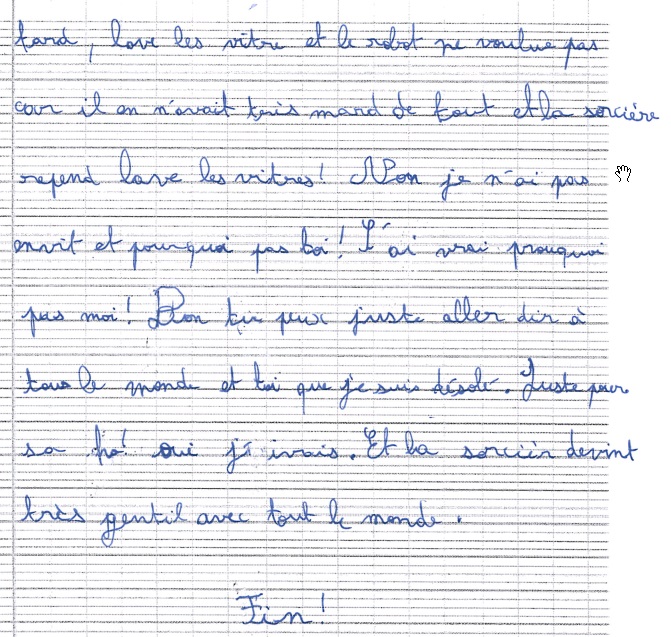 tard, lave les vitre et le robot ne voulue pas
car il en n'avait trais mard de tout et la sorcière
repend lave les vitres! Non je n'ai pas
envit et pourquoi pas toi! S'ai vrai prouquoi
pas moi! Bon tu peux juste aller dir à
tous le monde et toi que je suis désolé. Juste pour
sa oui j'i irais. Et la sorcièr devint
très gentil avec tout le monde.
Fin!